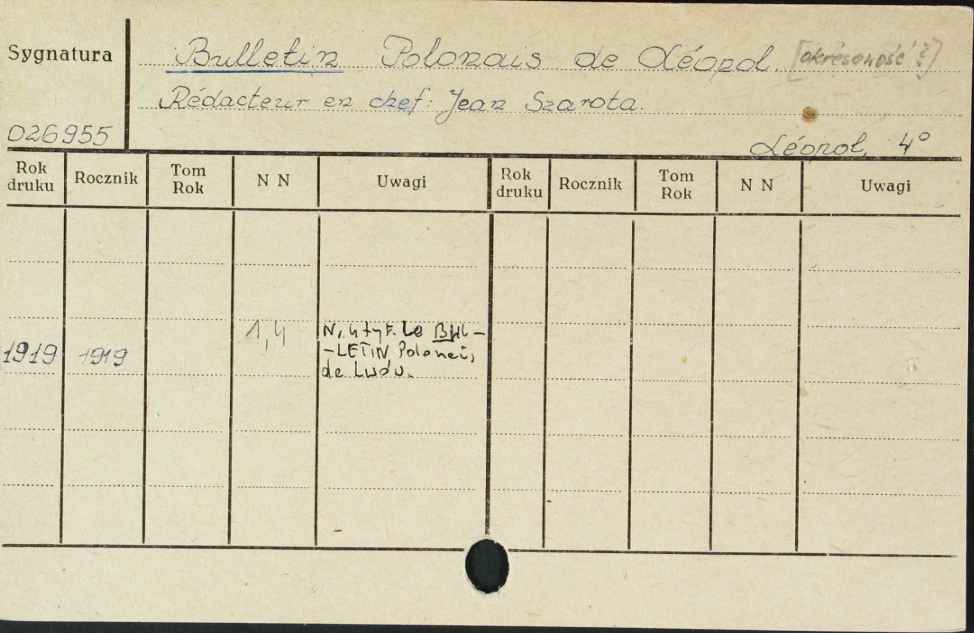 Sygnatura
Bulletin Polonais de Léopol. [okresowość?]
Rédacteur en chef: Jean Szarota.
026955
Léopol, 4°
Rok druku Rocznik Tom Rok N N Uwagi Rok druku Rocznik Tom Rok N N Uwagi
1919 1919 1,4 N. 4 tyt. Le BUL-
-LETIN Polonai,
de Lwów.